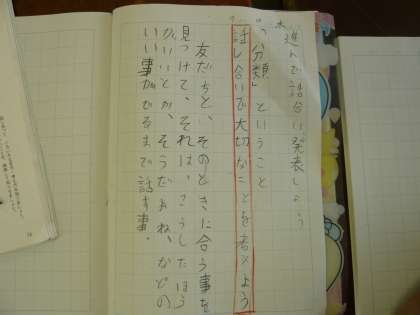 進んで話合い発表しよう
「分類」ということ
話し合いで大切なことを考えよう
友だちと、そのときに合う事を
見つけて、それは、こうしたほう
がいいとか、そうだよね、などの
いい事がでるまで話す事。